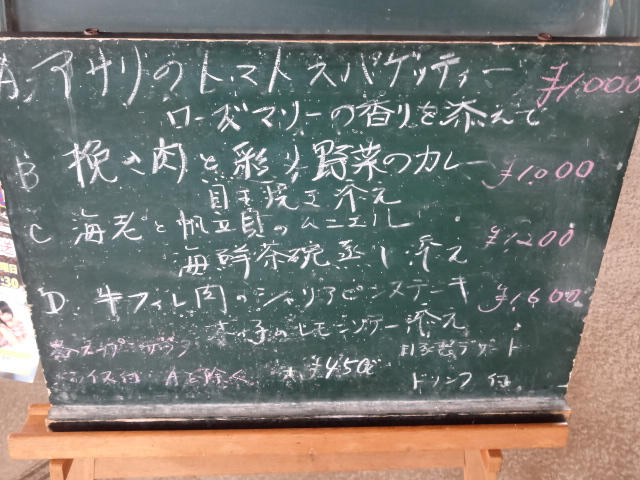 A アサリのトマトスパゲッティー ¥1000
ローズマリーの香りを添えて
B 挽き肉と彩り野菜のカレー ¥1000
目玉焼き添え
C 海老と帆立貝のムニエル ¥1200
海鮮茶碗蒸し添え
D 牛フィレ肉のシャリアピンステーキ ¥1600
のレモンソテー添え
ライス付 Aを除く ¥450
ドリンク付